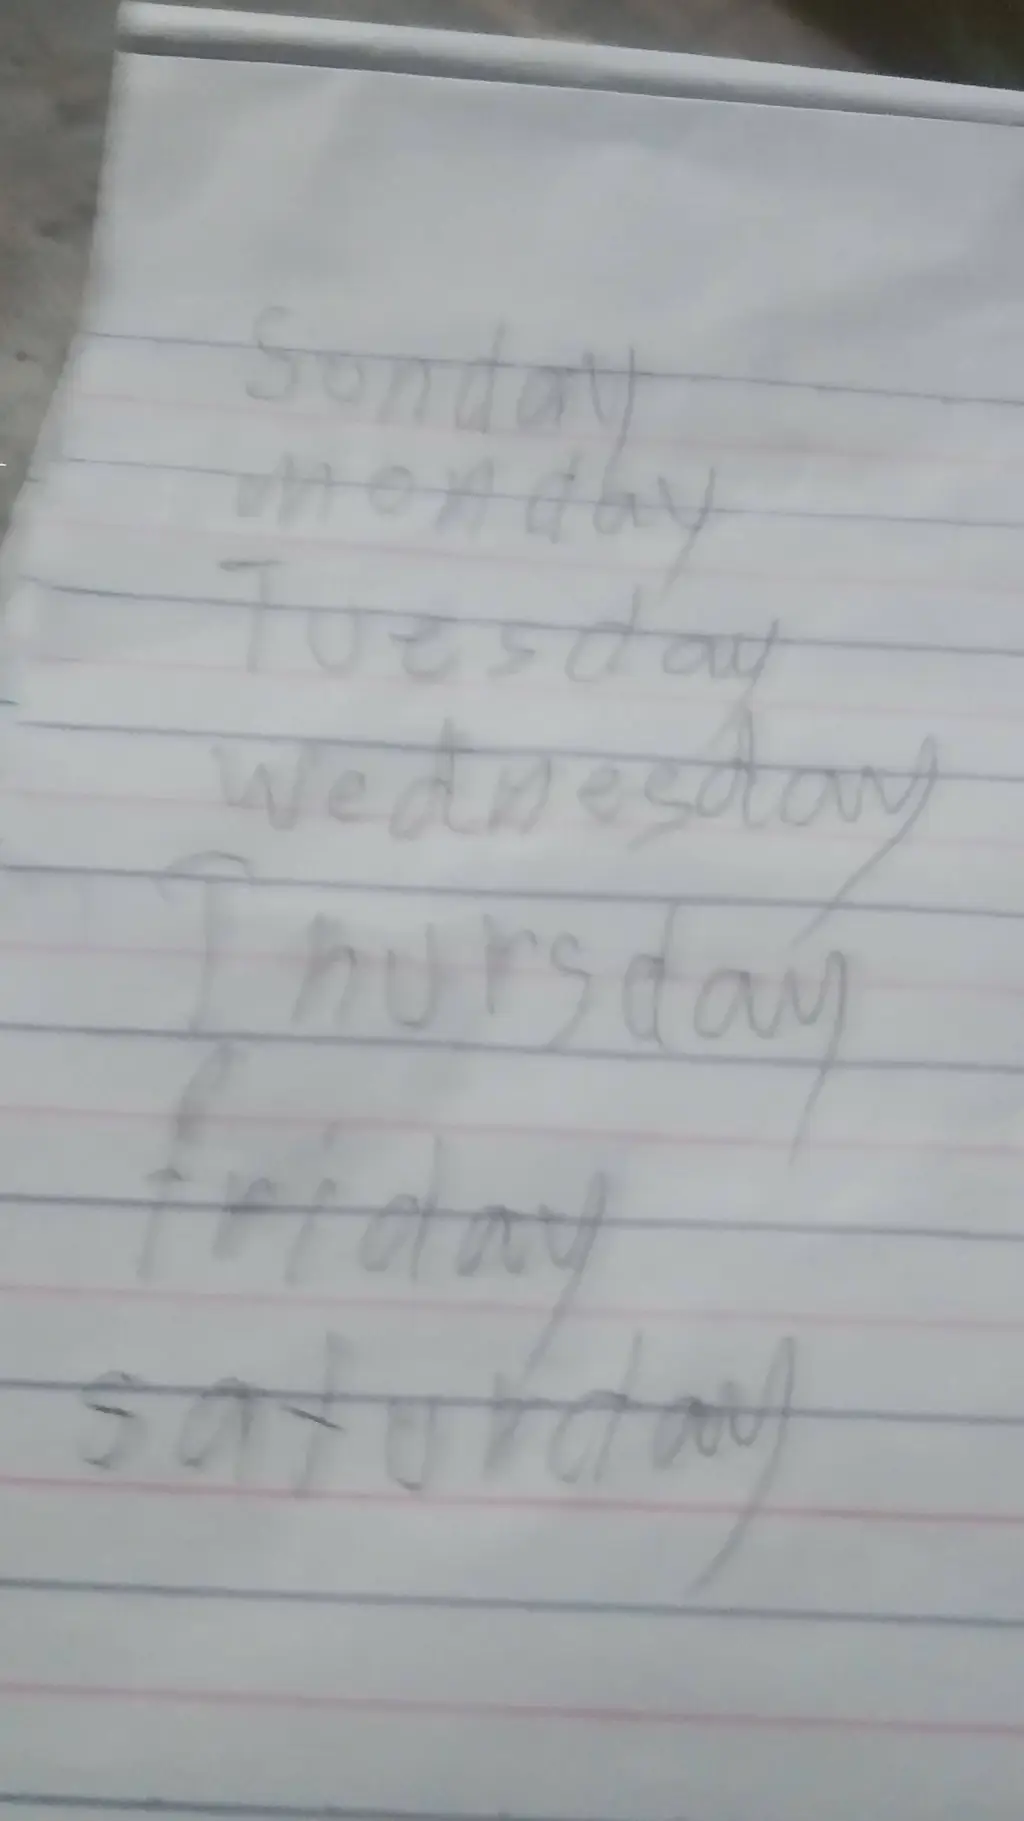 Sonday
monday
Tuesday
Wednesday
Thursday
friday
saturday